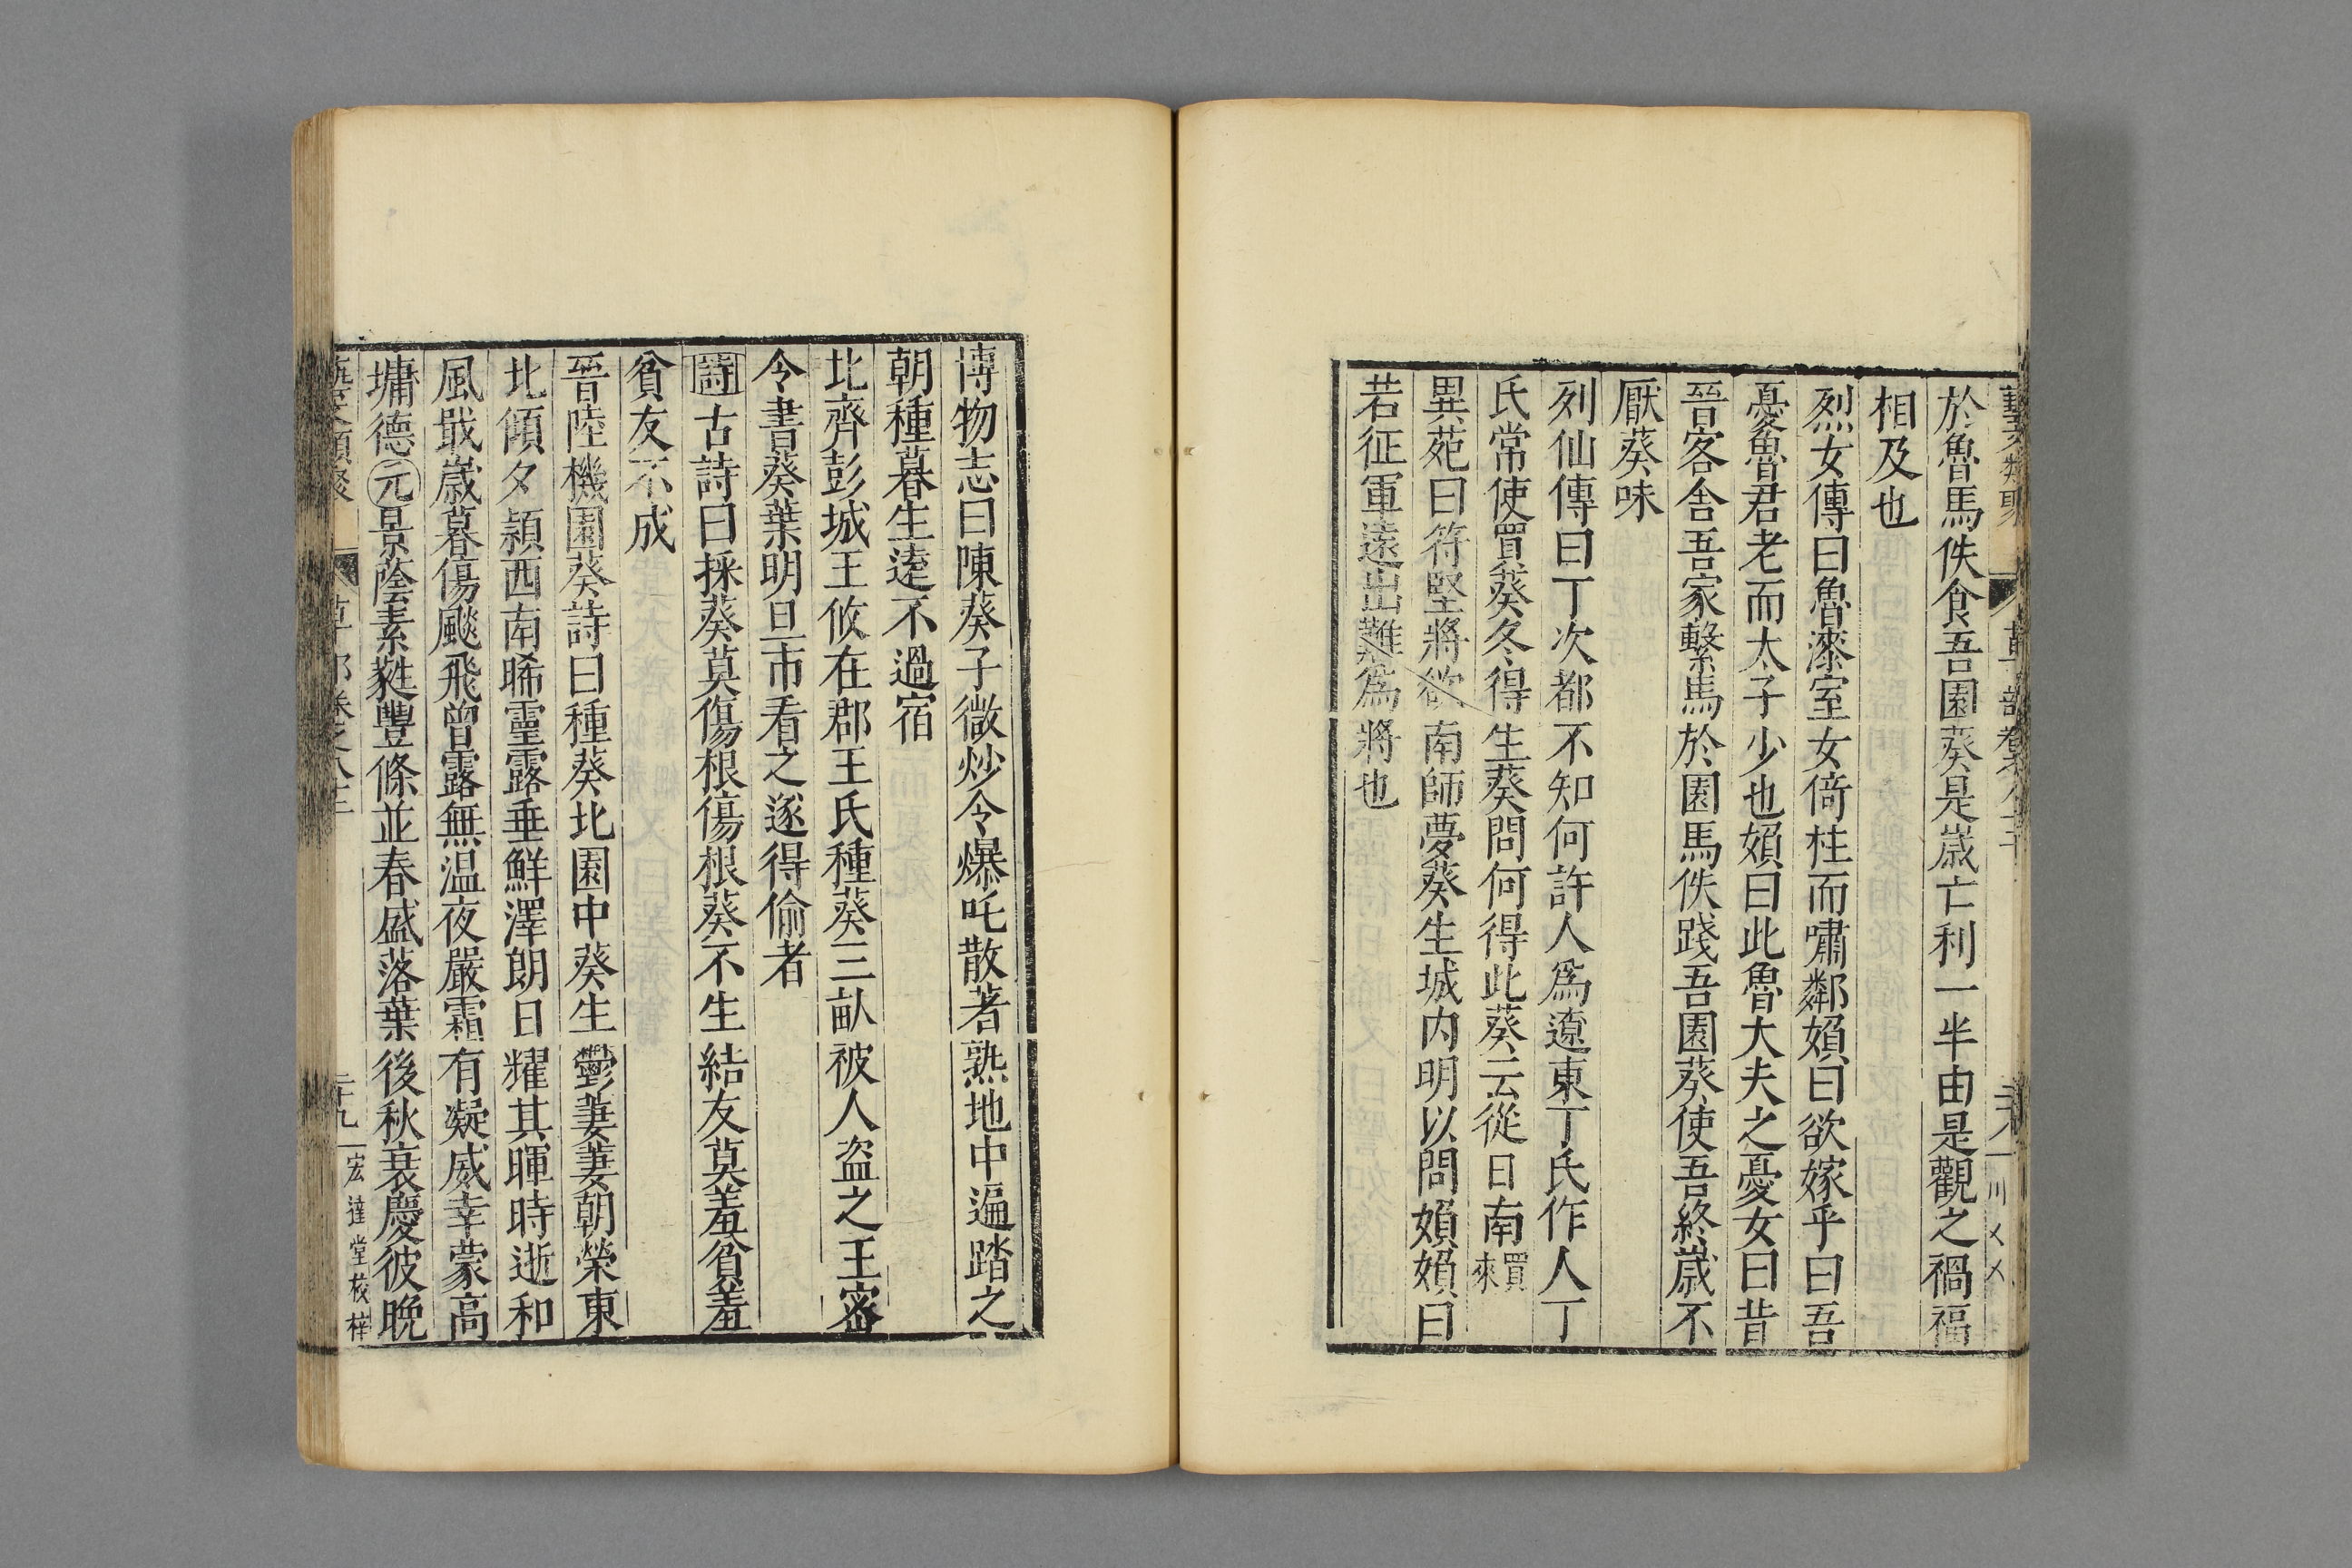 於魯馬佚食吾園葵是歲亡利一半由是觀之禍福
相及也
烈女傳曰魯漆室女倚柱而嘯鄰嫂曰欲嫁乎曰吾
憂魯君老而太子少也嫂曰此魯大夫之憂女曰昔
晉客舍吾家繫馬於園馬佚踐吾園葵使吾終歲不
厭葵味
列仙傳曰丁次都不知何許人爲遼東丁氏作人丁
氏常使買葵冬得生葵問何得此葵云從日南買來
異苑曰符堅將欲南師夢葵生城内明以問嫂嫂曰
若征軍遠出難爲將也
博物志曰陳葵子微炒令爆吒散著熟地中遍踏之
朝種暮生遠不過宿
北齊彭城王攸在郡王氏種葵三畝被人盜之王密
令書葵葉明旦市看之逐得偷者
詩古詩曰採葵莫傷根傷根葵不生結友莫羞貧羞
貧友不成
晉陸機園葵詩曰種葵北園中葵生鬱萋萋朝榮東
北傾夕穎西南晞靈露垂鮮澤朗日耀其暉時逝和
風戢歲暮傷飈飛曾露無温夜嚴霜有凝威幸蒙高
墉德元景蔭素蕤豐條並春盛落葉後秋衰慶彼晚
草部卷之八十二
二十九
宏達堂校梓